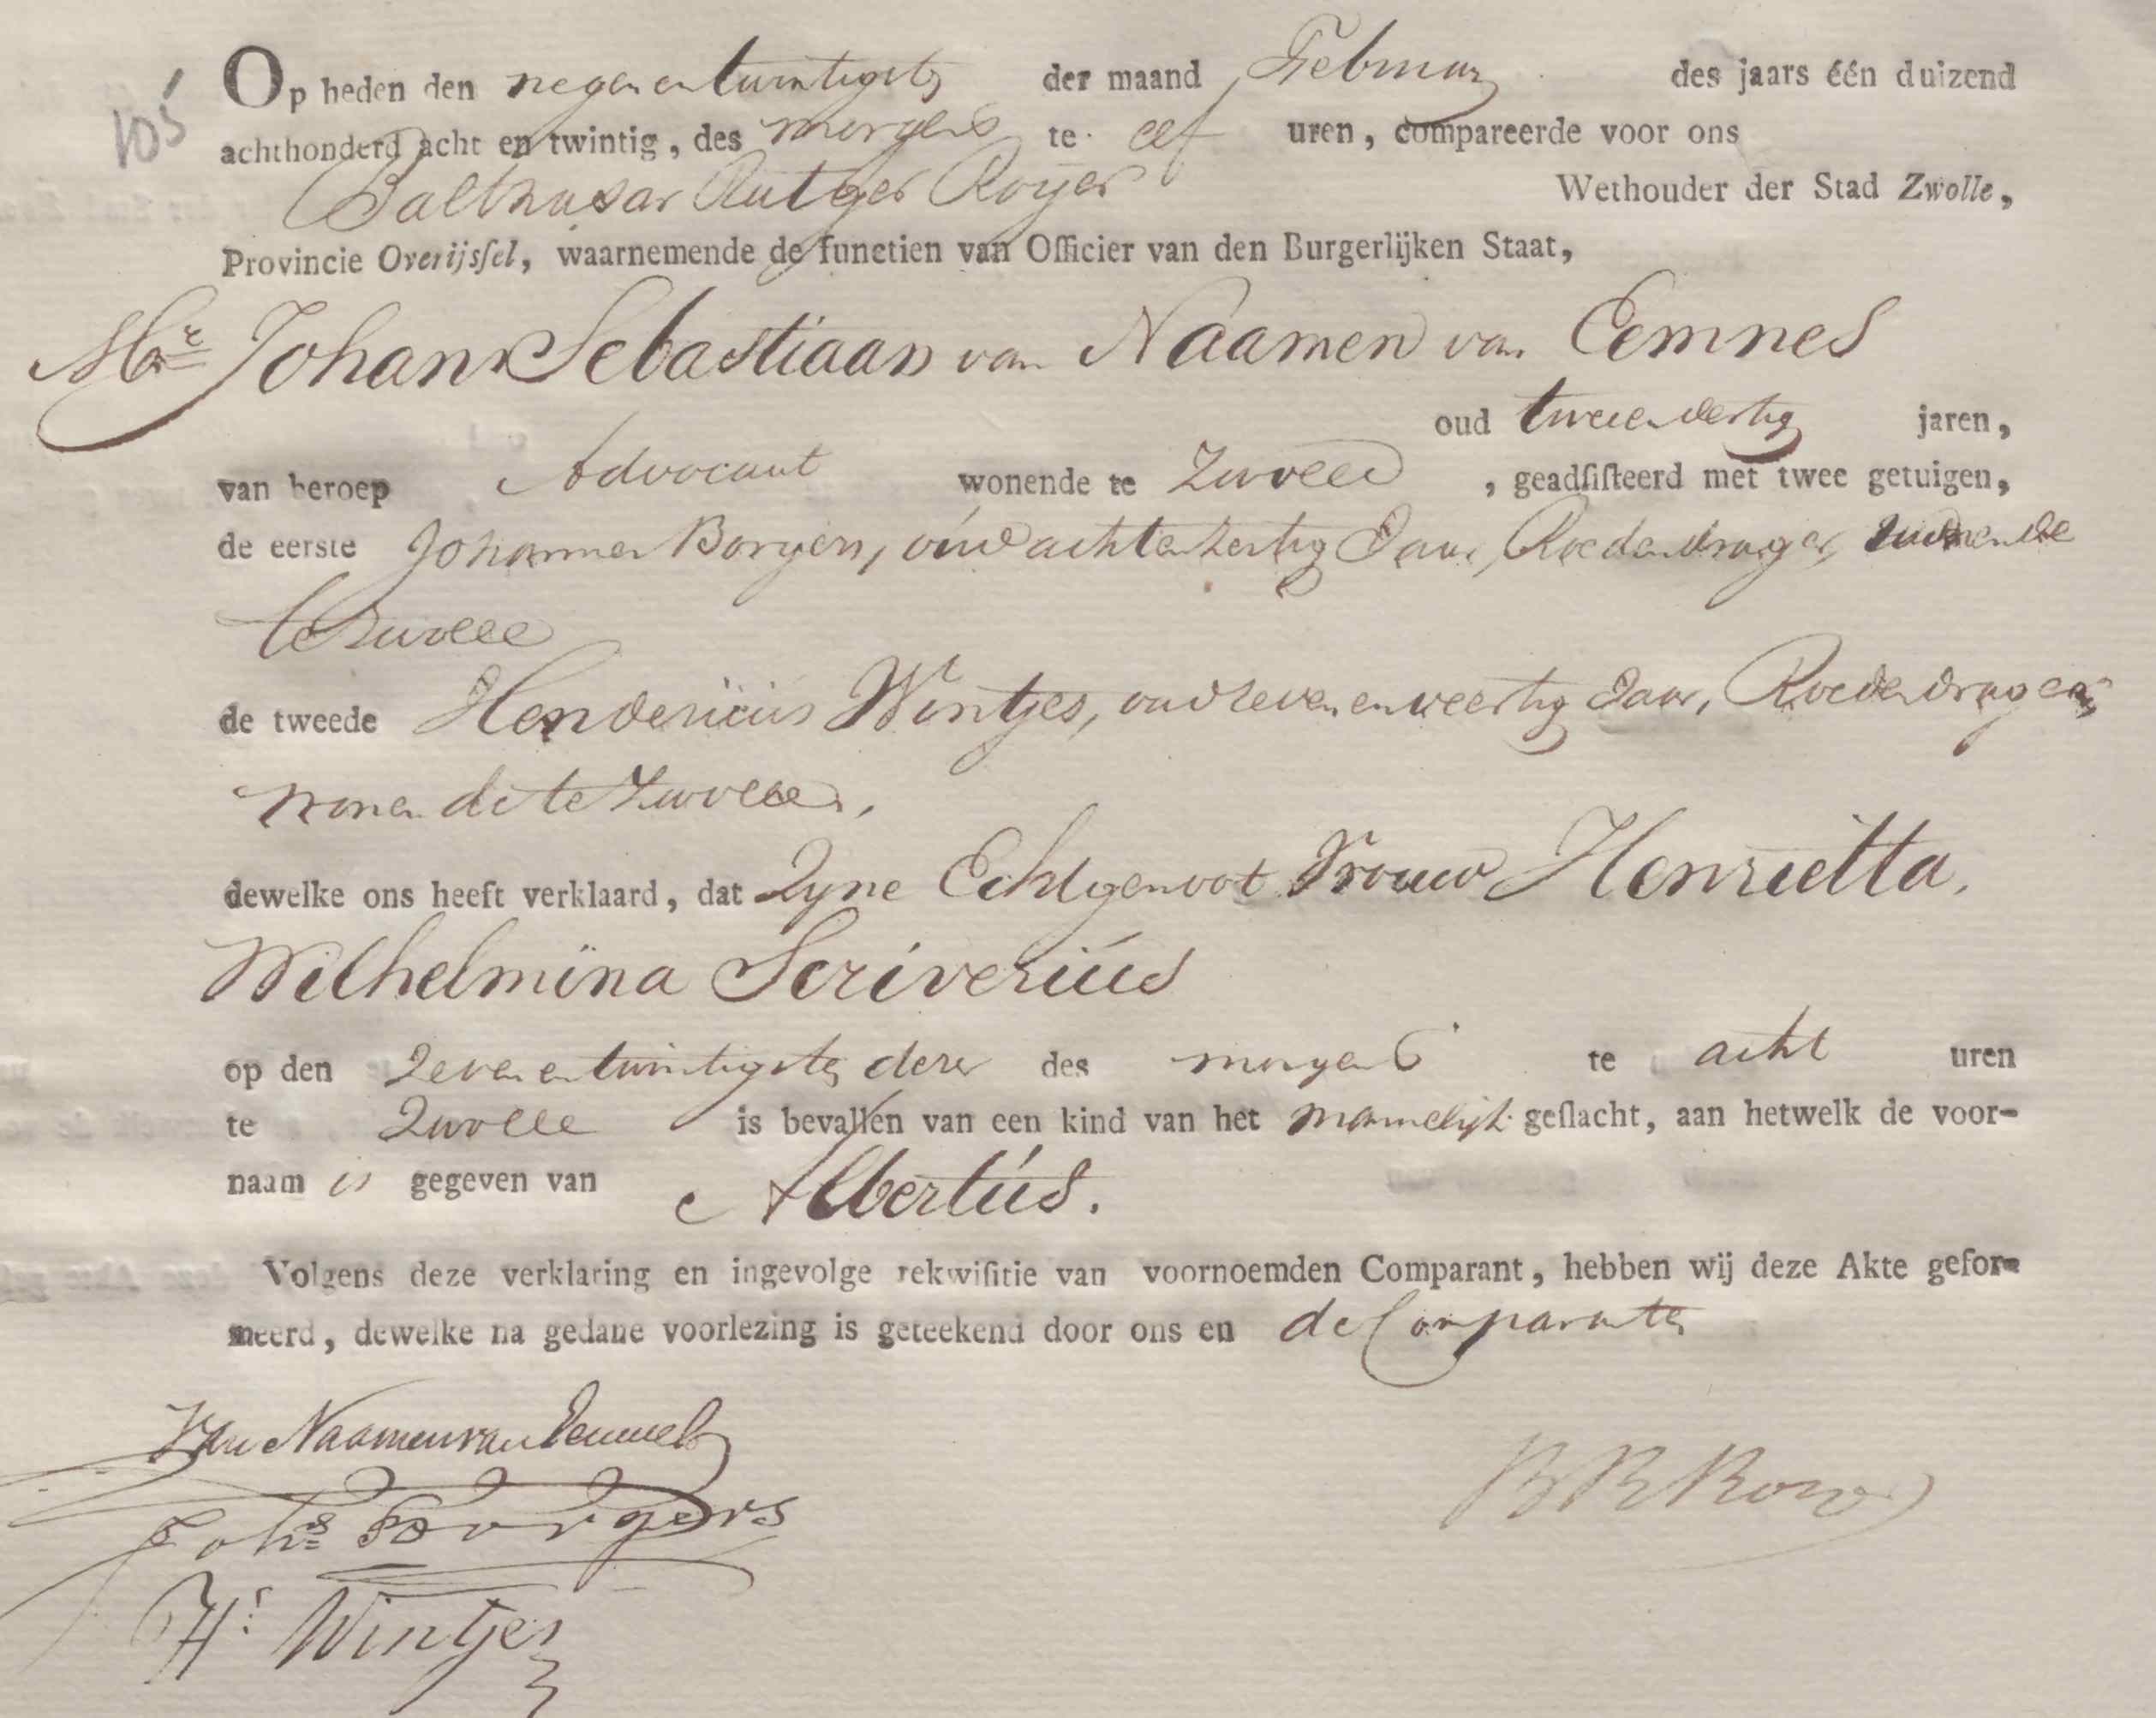 105
Op heden den negenentwintigste der maand Februarij des jaars één duizend
achthonderd acht en twintig, des morgens te elf uren, compareerde voor ons
Balthasar Rutger Royer Wethouder der Stad Zwolle,
Provincie Overijsſel, waarnemende de functien van Officier van den Burgerlijken Staat,
Mr Johan Sebastiaan van Naamen van Eemnes
oud tweeendertig jaren,
van beroep Advocaat wonende te Zwolle, geadſiſteerd met twee getuigen,
de eerste Johannes Borgers, oud achtenzestig Jaar, Roededrager, wonende
te Zwolle
de tweede Hendericus Wintjes, oud zevenenveertig Jaar, Roededrager,
wonende te Zwolle,
dewelke ons heeft verklaard, dat Zyne Echtgenoot Vrouw Henrietta
Wilhelmina Scriverius
op den Zevenentwintigste dezer des morgens te acht uren
te Zwolle is bevallen van een kind van het mannelijk geſlacht, aan hetwelk de voor-
naam is gegeven van Albertus.
Volgens deze verklaring en ingevolge rekwiſitie van voornoemden Comparant, hebben wij deze Akte gefor-
meerd, dewelke na gedane voorlezing is geteekend door ons en de Comparanten
Van Naamen van Eemnes
Johs Borgers
B R Royer
Hs Wintjes